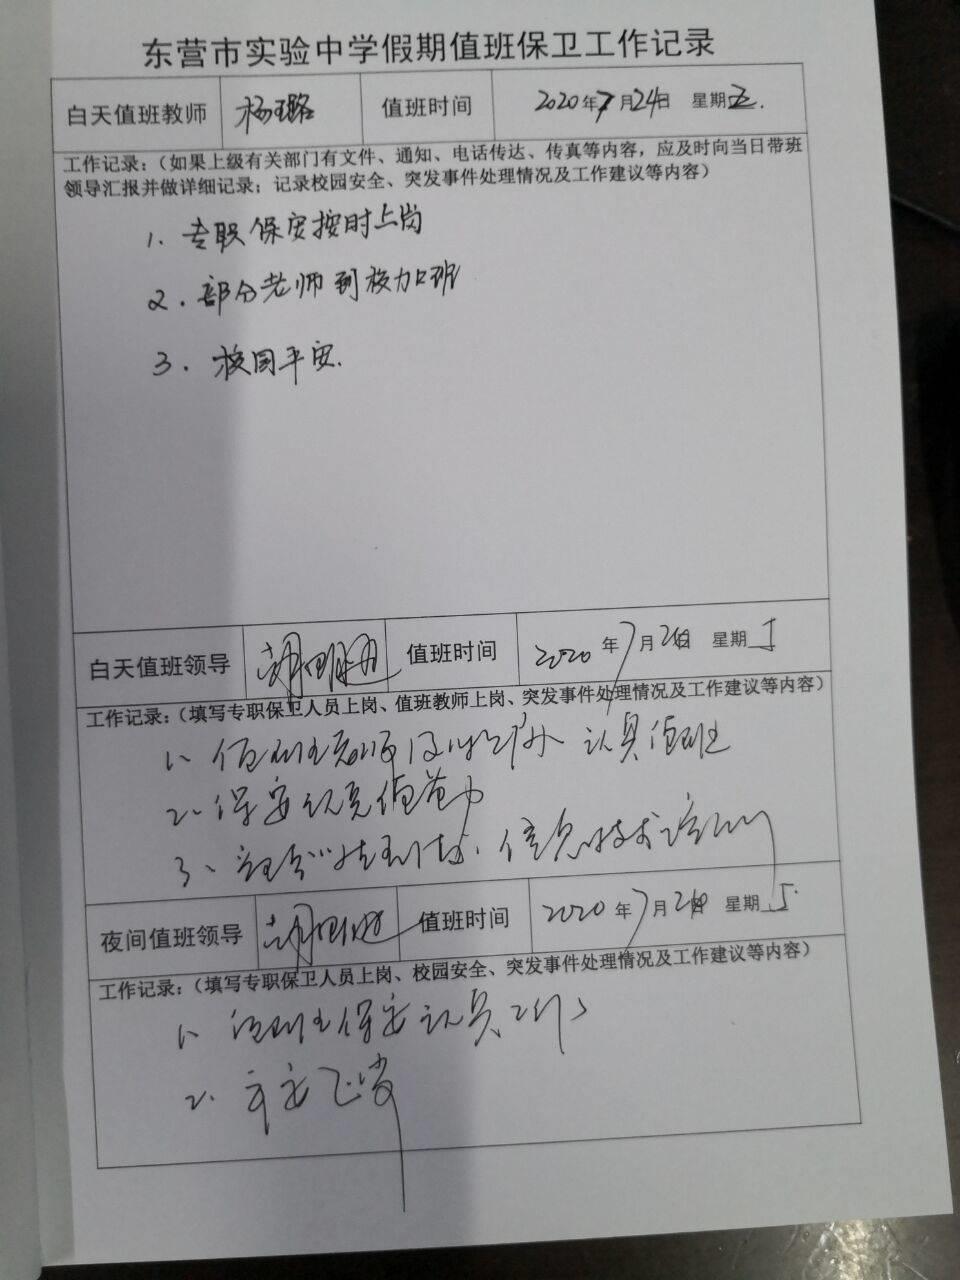 东营市实验中学假期值班保卫工作记录
白天值班教师 杨璐 值班时间 2020年7月24日 星期五.
工作记录:(如果上级有关部门有文件、通知、电话传达、传真等内容，应及时向当日带班
领导汇报并做详细记录；记录校园安全、突发事件处理情况及工作建议等内容)
1. 专职保安按时上岗
2. 部分老师到校加班
3. 校园平安.
白天值班领导 值班时间 2020年7月24日 星期五
工作记录:(填写专职保卫人员上岗、值班教师上岗、突发事件处理情况及工作建议等内容)
1、值班老师及时到校 认真值班
2、保安认真值勤
3、信息技术培训
夜间值班领导 值班时间 2020年7月24日 星期5
工作记录:(填写专职保卫人员上岗、校园安全、突发事件处理情况及工作建议等内容)
1、值班保安认真工作
2、